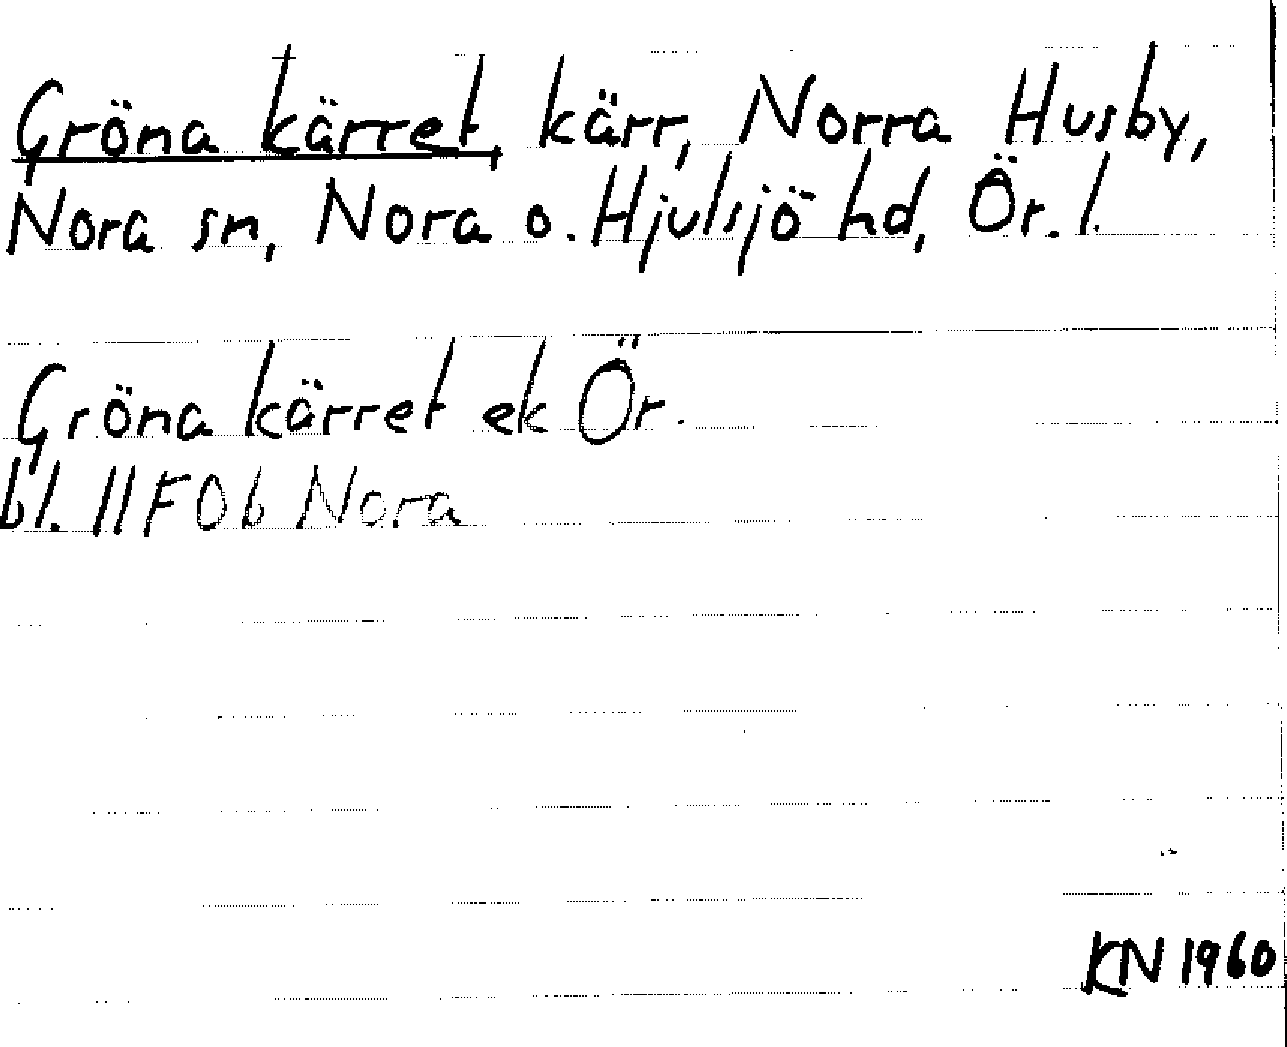 Gröna kärret, kärr, Norra Husby,
Nora sn, Nora o. Hjulsjö hd, Ör. l.
Gröna kärret ek Ör.
bl. 11F0b Nora
KN 1960